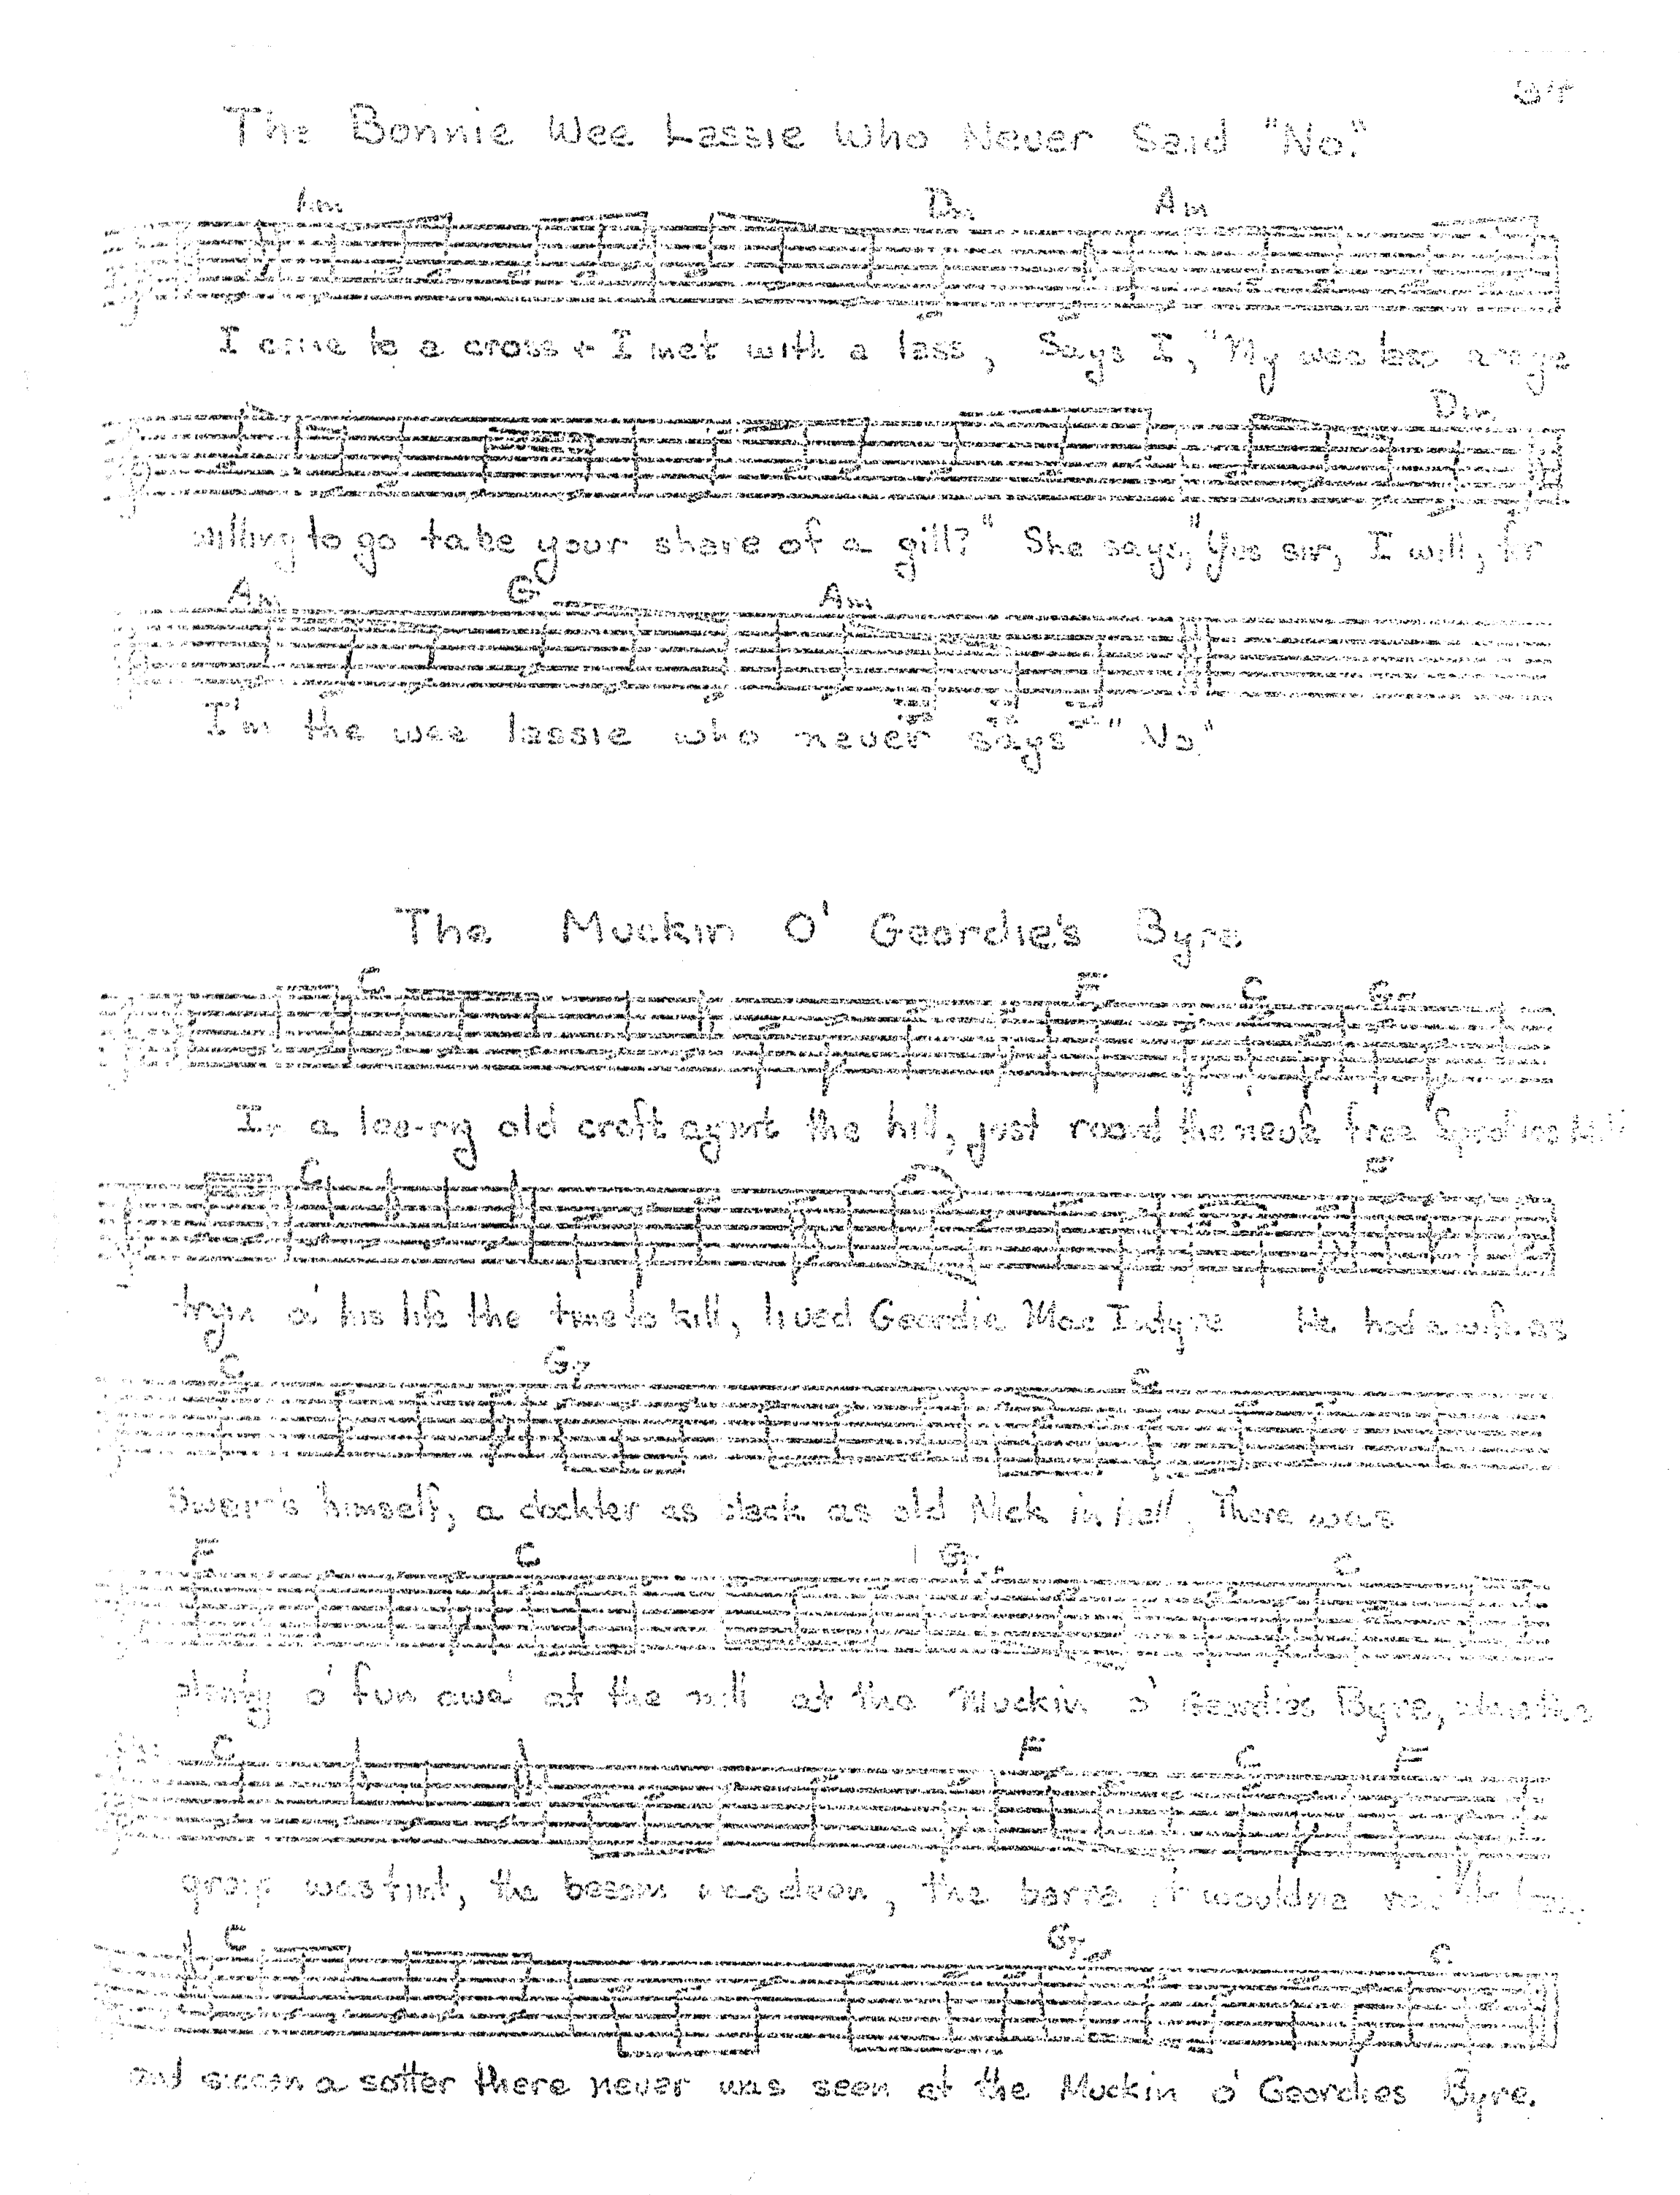 The Bonnie Wee Lassie Who Never Said "No."
Am Dm Am
I came to a cross & I met with a lass, Says I, "My wee lass are ye
Dm
willing to go take your share of a gill?" She says, "Yes sir, I will, for
Am G Am
I'm the wee lassie who never says "No."
The Muckin O' Geordie's Byre
C F C G7
In a lee-rig old croft aynt the hill, just roond the neuk frae
C F
tryin a' his life the time to kill, lived Geordie Mac Intyre He had a wife as
C G7 C
himself, a dochter as black as old Nick in hell, There was
F C G7 C
plenty o' fun awa' at the mill at the Muckin o' Geordies Byre,
C F C F
graip was tint, the besom was deen, the barra it wouldna
C G7 C
and siccan a sotter there never was seen at the Muckin o' Geordies Byre.